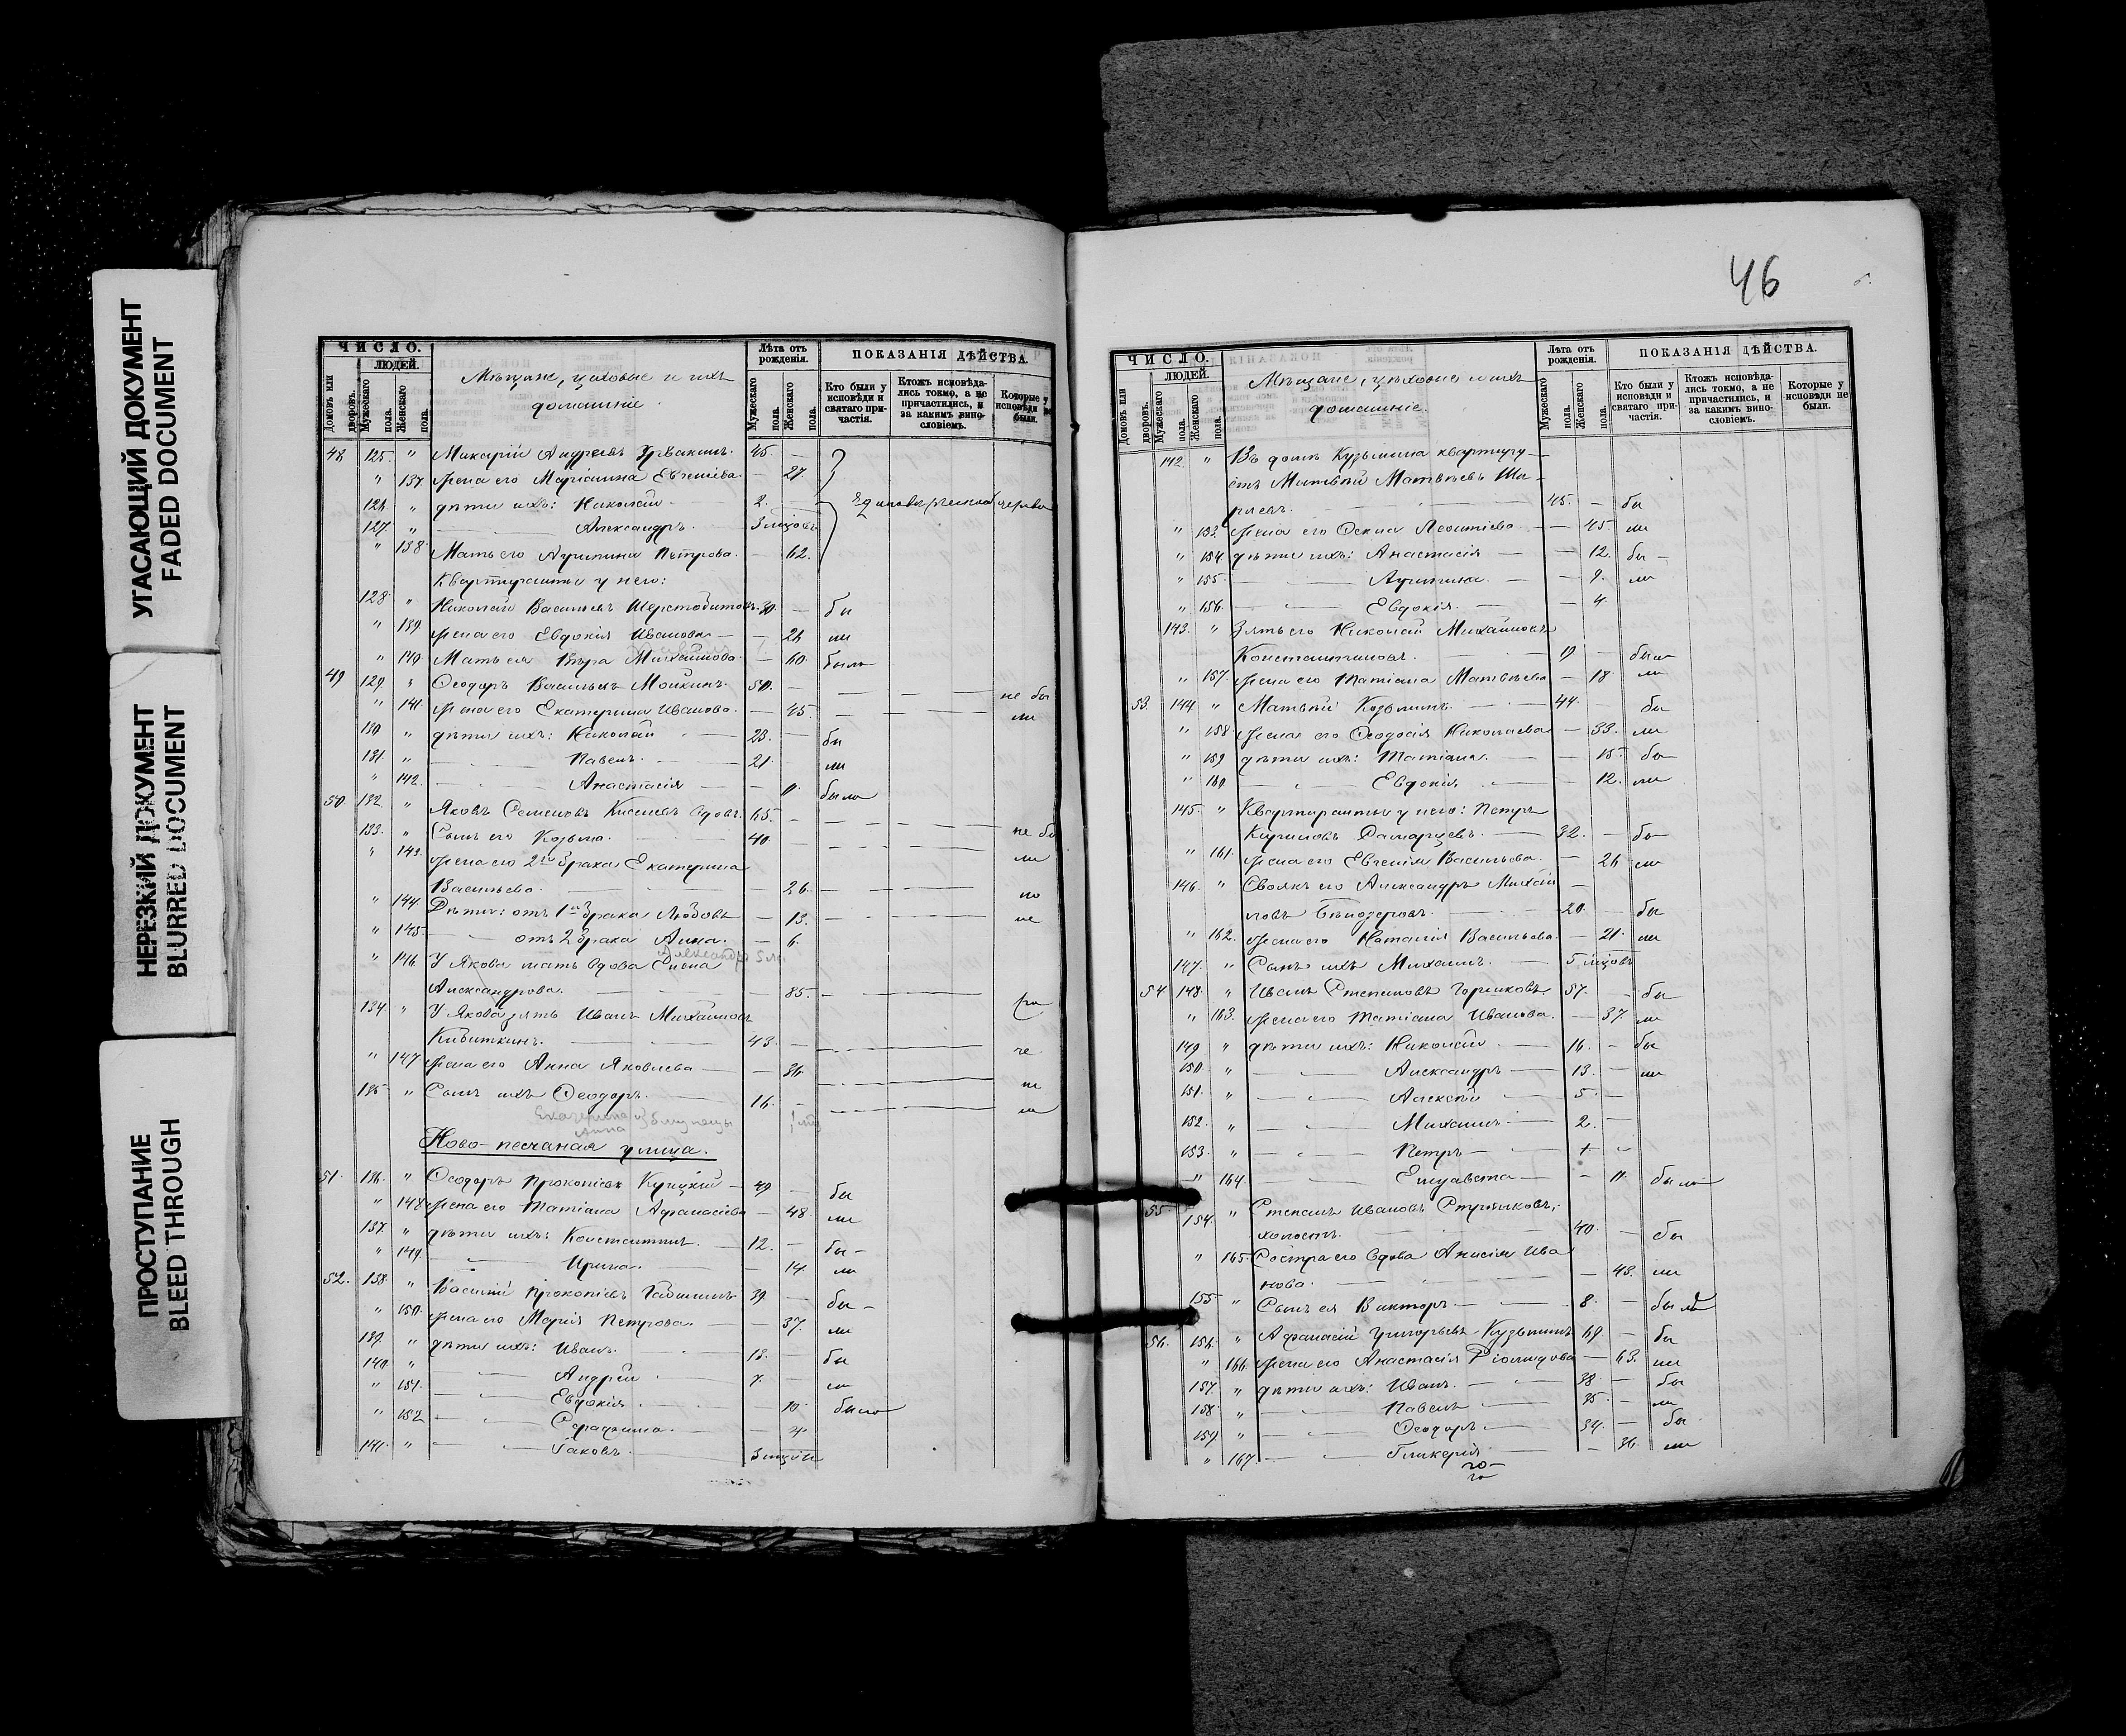 УГАСАЮЩИЙ ДОКУМЕНТ
FADED DOCUMENT
НЕРЕЗКИЙ ДОКУМЕНТ
BLURRED DOCUMENT
ПРОСТУПАНИЕ
BLEED THROUGH
ЧИСЛО.
ЛЮДЕЙ.
Домовъ или дворовъ.
Мужескаго пола.
Женскаго пола.
Мѣщане, цѣховые и ихъ
домашніе.
Лѣта отъ рожденія.
Мужескаго пола.
Женскаго пола.
ПОКАЗАНІЯ ДѢЙСТВА.
Кто были у исповѣди и святаго причастія.
Ктожъ исповѣдались токмо, а не причастились, и за какимъ винословіемъ.
Которые у исповѣди не были.
48 125. " Макарій Андреевъ 45. —
" 137 жена его Маріанна Евгеніева. — 27.
126. " дѣти ихъ: Николай. 2. Единовѣрческой церкви
127. " Александръ. 3 мцовъ
" 138 Мать его Агрипина Петрова. — 62.
Квартиранты у него:
128. " Николай Васильевъ Шерстобитовъ. 30. — бы
" 139 жена его Евдокія Иванова — 26 ли
" 140 Мать ея Вѣра Михайлова. — 60. была
49 129. " Ѳеодоръ Васильевъ Мойкинъ. 50. — не бы
" 141. жена его Екатерина Иванова. — 45. ли
130 " дѣти ихъ: Николай 23. — бы
131. " Павелъ. 21. ли
" 142. Анастасія — 11. была
50 132. " Яковъ Семеновъ Киселевъ вдовъ. 65. — не бы
133. " Сынъ его Козьма. 40. ли
" 143. жена его 2го брака Екатерина
Васильева. 26.
" 144. Дѣти: отъ 1го брака Любовь — 13. не
" 145. отъ 2 брака Анна. — 6.
Александръ 5 м.
" 146. У Якова мать вдова Елена
Александрова. 85.
134. " У Якова зять Иванъ Михайловъ
Кибиткинъ. 43.
" 147 жена его Анна Яковлева — 36.
135 " Сынъ ихъ Ѳеодоръ. 16.
Екатерина
Анна
Ново-песчаная улица.
51. 136. " Ѳеодоръ Прокопіевъ Купцкій — 49 — бы
" 148 жена его Татіана Афанасіева — 48. ли
137. " дѣти ихъ: Константинъ. — 12. — бы —
" 149. Ирина. — 14 ли
52. 138. " Василій Прокопіевъ 39. — бы —
" 150. жена его Марія Петрова. — 37. ли
139. " дѣти ихъ: Иванъ. 13. — бы
140. " Андрей 7. — ли
" 151. Евдокія — 10. была
" 152 Серафима. — 4.
141. " Іаковъ. 3 мцовъ
46
ЧИСЛО.
ЛЮДЕЙ.
Домовъ или дворовъ.
Мужескаго пола.
Женскаго пола.
Мѣщане, цѣховые и ихъ
домашніе.
Лѣта отъ рожденія.
Мужескаго пола.
Женскаго пола.
ПОКАЗАНІЯ ДѢЙСТВА.
Кто были у исповѣди и святаго причастія.
Ктожъ исповѣдались токмо, а не причастились, и за какимъ винословіемъ.
Которые у исповѣди не были.
142. " Въ домѣ Кузьмина квартиру-
етъ Матвѣй Матвѣевъ Ша-
45. — бы
" 153. жена его Леонтіева — 45 ли
" 154 дѣти ихъ: Анастасія — 12. бы —
" 155. Агрипина. — 9. ли
" 156. Евдокія. — 4.
143. " Зять его Николай Михайловъ
Константиновъ. 19 — былъ
" 157. жена его Татіана Матвѣева — 18. ли
53. 144 " Матвѣй Козьминъ. 44. бы
" 158 жена его Ѳеодосія Николаева — 33. ли
" 159 дѣти ихъ: Татіана. — 15. бы
" 160 Евдокія. — 12. ли
145. " Квартиранты у него: Петръ
Кириловъ 32. — бы
" 161. жена его Евгенія Васильева. — 26 ли
146. " Своякъ его Александръ Михай
ловъ Бѣлозеровъ. 20. — бы
" 162. жена его Наталія Васильева. — 21. ли
147. " Сынъ ихъ Михаилъ. 5 мцовъ
54 148. " Иванъ Степановъ Горшковъ. 57. — бы
" 163. жена его Татіана Иванова. — 37. ли
149 " дѣти ихъ: Николай. 16. — бы
150. " Александръ 13. — ли
151. " Алексѣй 5. —
152. " Михаилъ 2. —
153. " Петръ
" 164. Елизавета — 11. была
55 154. " Степанъ Ивановъ
холостъ. 40. — бы
" 165. Сестра его вдова Анисія Ива
нова. — 43. ли
155 " Сынъ ея Викторъ 8. — былъ
56. 156. " Афанасій Григорьевъ Кузьминъ 69 — бы
" 166 жена его Анастасія Діомидова — 63. ли
157. " дѣти ихъ: Иванъ. 38. — бы
158. " Павелъ 35. — ли
159 " Ѳеодоръ 34. — бы
" 167 Гликерія — 36. ли